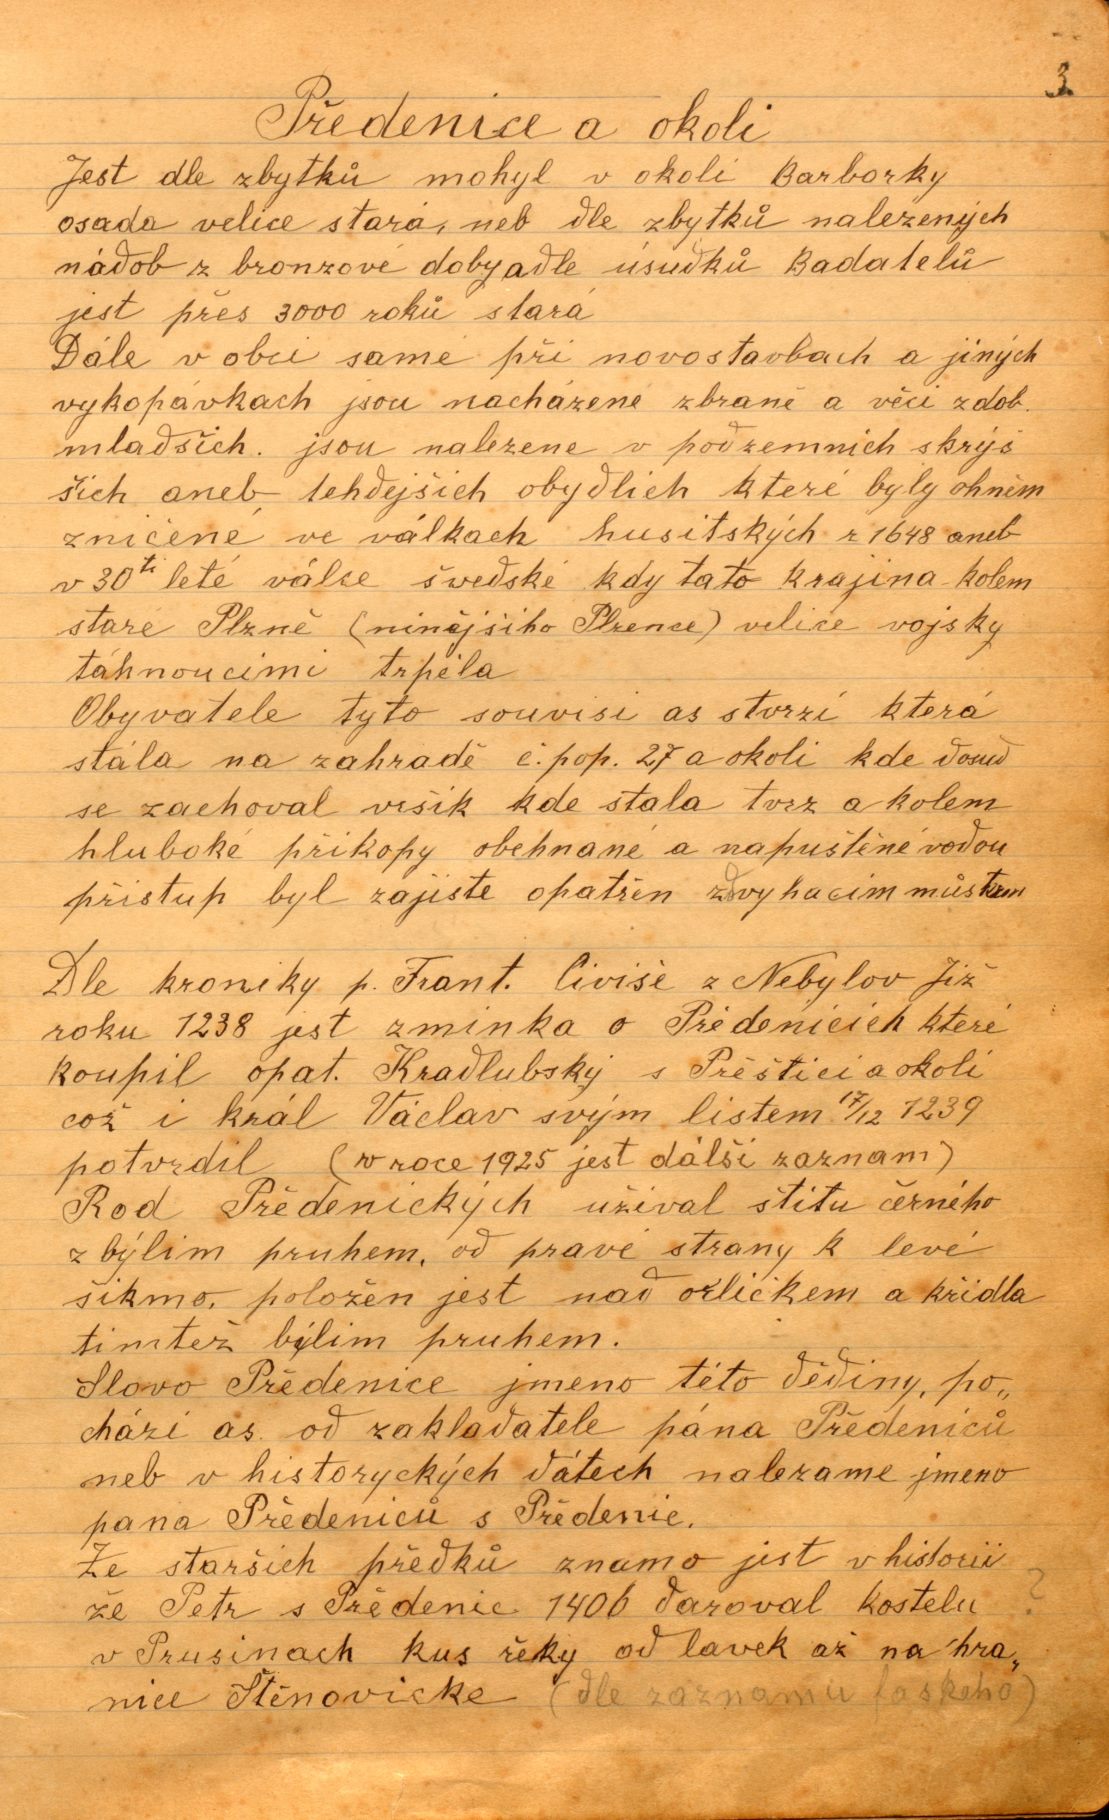 3.
Předenice a okoli
Jest dle zbytků mohyl v okoli Barborky
osada velice stará, neb dle zbytků nalezených
nádob z bronzové doby a dle úsudků Badatelů
jest přes 3000 roků stará
Dále v obci samé při novostavbach a jiných
vykopávkach jsou nacházené zbraně a věci z dob.
mladšich. jsou nalezene v podzemnich skrýš
šich aneb tehdejšich obydlich které byly ohněm
zničené ve válkach husitských r 1648 aneb
v 30ti leté válce švedské kdy tato krajina kolem
staré Plzně (ninějšiho Plzence) velice vojsky
táhnoucimi trpěla
Obyvatele tyto souvisi as stvrzí která
stála na zahradě č. pop. 27 a okoli kde dosud
se zachoval vršik kde stala tvrz a kolem
hluboké přikopy obehnané a napuštěné vodou
přistup byl zajiste opatřen zdvyhacim můstkem
Dle kroniky p. Frant. Civiše z Nebylov Již
roku 1238 jest zminka o Předenicich které
koupil opat. Kradlubský s Přěštici a okoli
což i král Václav svým listem 17/12 1239
potvrdil (v roce 1925 jest dálši zaznam)
Rod Předenických užival štitu černého
z býlim pruhem, od pravé strany k levé
šikmo. položen jest nad orličkem a křidla
timtež býlim pruhem.
Slovo Předenice jmeno této dědiny, po„
cházi as. od zakladatele pána Předeniců
neb v historyckých dátech nalezame jmeno
pana Předeniců s Předenic.
Ze staršich předků znamo jest v historii
že Petr s Předenic 1406 daroval kostelu ?
v Prusinach kus řeky od lavek až na hra„
nice Štěnovicke (dle zaznamu faskeho)